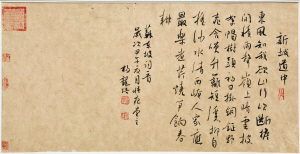 新城道中
東風知我欲山行吹斷簷
間積雨聲嶺上晴雲披
絮帽樹頭初日掛銅鉦野
桃含笑竹籬短溪柳自
搖沙水清西崦人家應
最樂煮芹燒筍餉春
耕
蘇東坡
歲次甲子